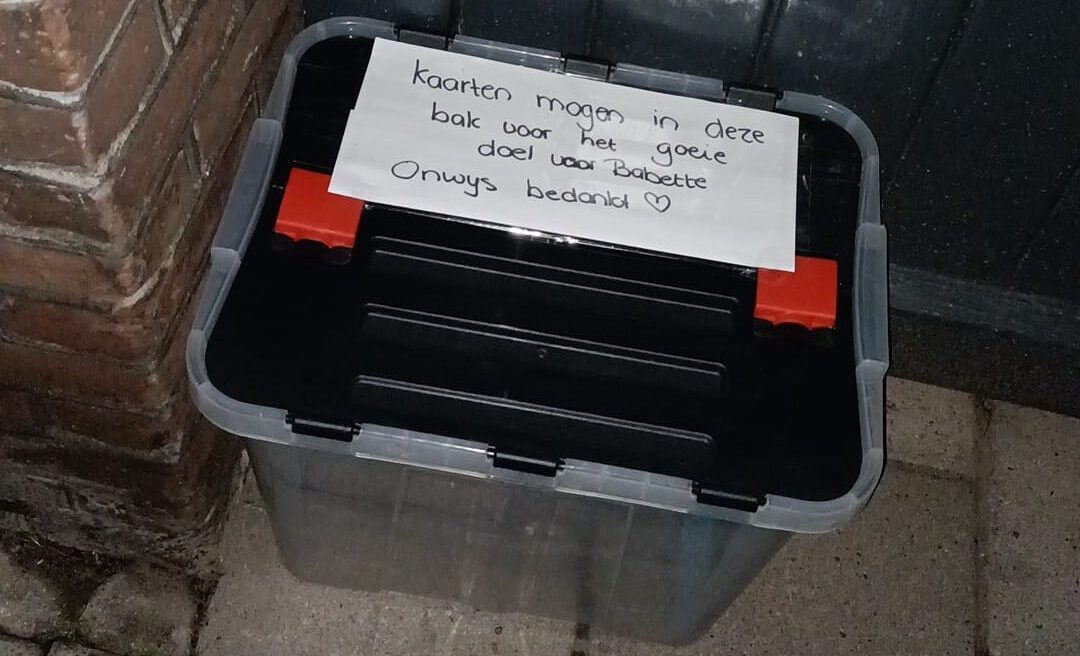 Kaarten mogen in deze
bak voor het goeie
doel voor Babette
Onwijs bedankt ♡